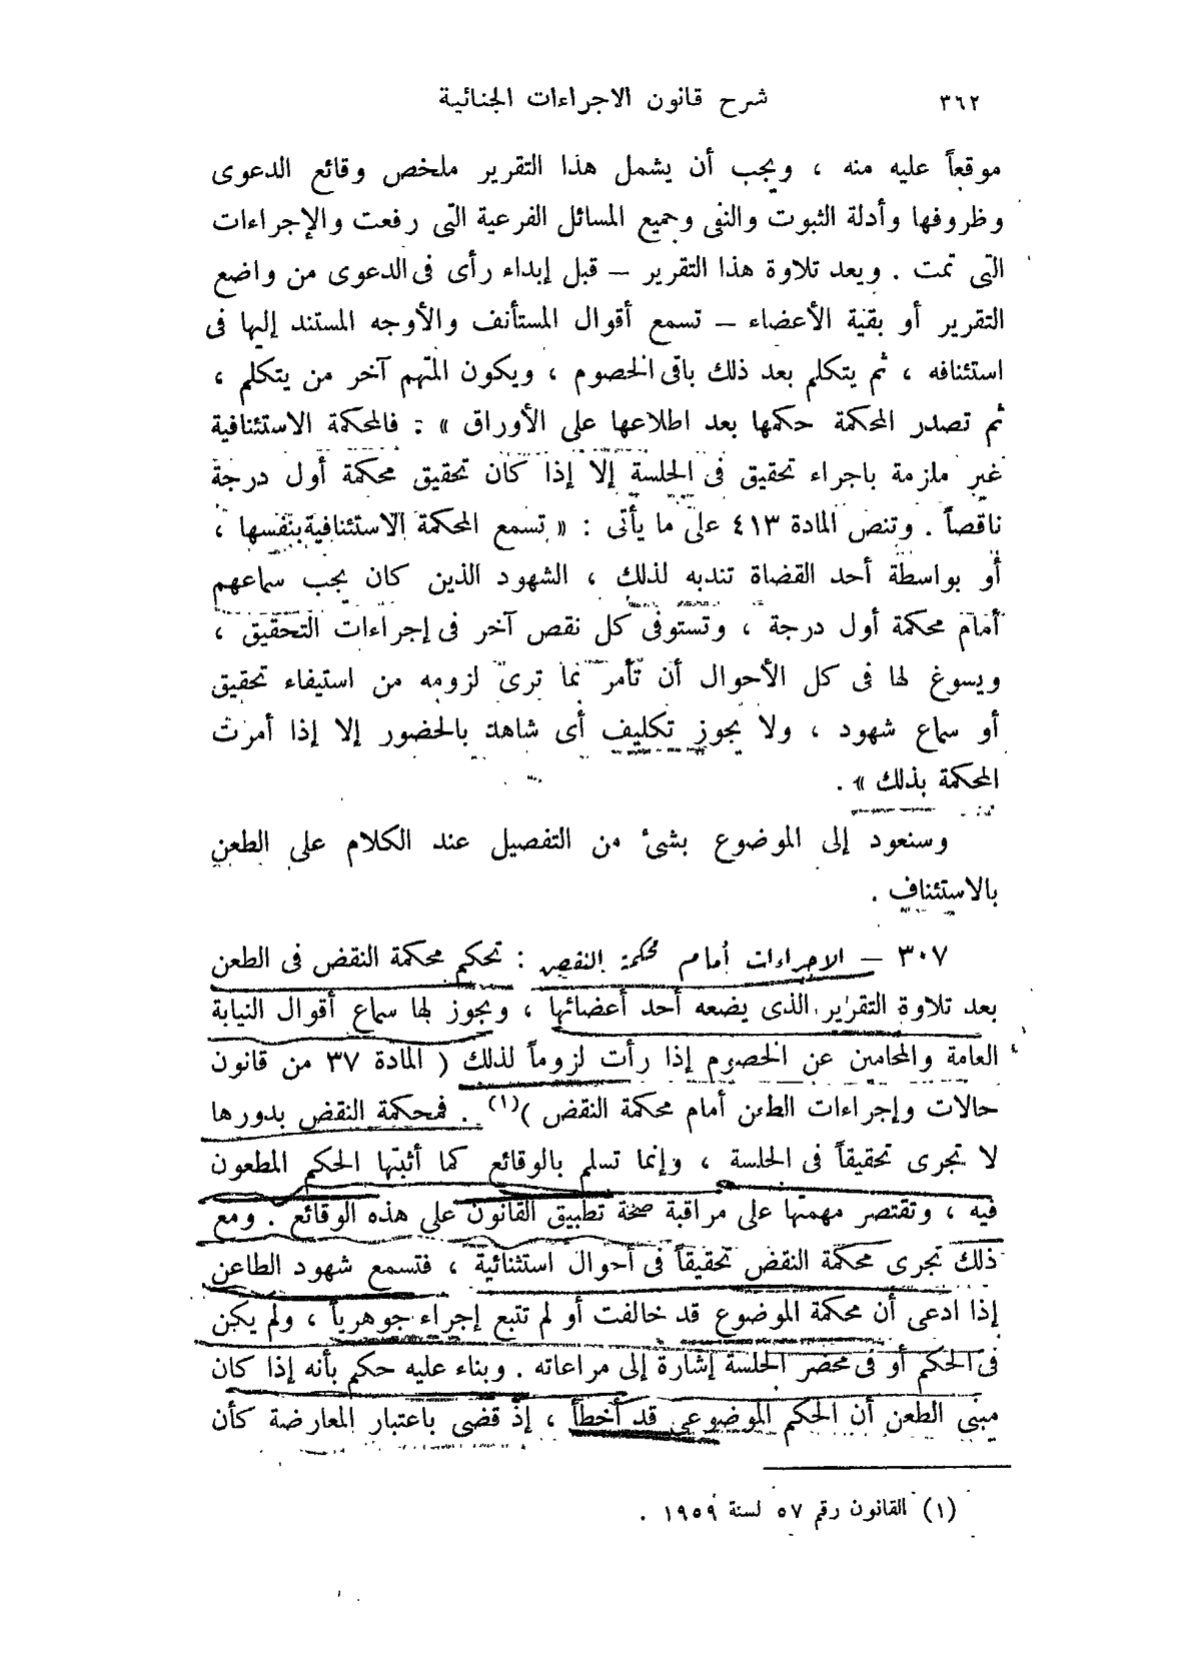 ٣٦٢ شرح قانون الاجراءات الجنائية
موقعاً عليه منه ، ويجب أن يشمل هذا التقرير ملخص وقائع الدعوى
وظروفها وأدلة الثبوت والنفى وجميع المسائل الفرعية التى رفعت والإجراءات
التى تمت . ويعد تلاوة هذا التقرير – قبل إبداء رأى فى الدعوى من واضع
التقرير أو بقية الأعضاء – تسمع أقوال المستأنف والأوجه المستند إليها فى
استئنافه ، ثم يتكلم بعد ذلك باقى الخصوم ، ويكون المتهم آخر من يتكلم ،
ثم تصدر المحكمة حكمها بعد اطلاعها على الأوراق » : فالمحكمة الاستئنافية
غير ملزمة باجراء تحقيق فى الجلسة إلا إذا كان تحقيق محكمة أول درجة
ناقصاً . وتنص المادة ٤١٣ على ما يأتى : « تسمع المحكمة الاستئنافية بنفسها ،
أو بواسطة أحد القضاة تندبه لذلك ، الشهود الذين كان يجب سماعهم
أمام محكمة أول درجة ، وتستوفى كل نقص آخر فى إجراءات التحقيق ،
ويسوغ لها فى كل الأحوال أن تأمر بما ترى لزومه من استيفاء تحقيق
أو سماع شهود ، ولا يجوز تكليف أى شاهد بالحضور إلا إذا أمرت
المحكمة بذلك » .
وسنعود إلى الموضوع بشئ من التفصيل عند الكلام على الطعن
بالاستئناف .
٣٠٧ – الاجراءات أمام محكمة النقض : تحكم محكمة النقض فى الطعن
بعد تلاوة التقرير الذى يضعه أحد أعضائها ، ويجوز لها سماع أقوال النيابة
العامة والمحامين عن الخصوم إذا رأت لزوماً لذلك ( المادة ٣٧ من قانون
حالات وإجراءات الطعن أمام محكمة النقض )(١) . فمحكمة النقض بدورها
لا تجرى تحقيقاً فى الجلسة ، وإنما تسلم بالوقائع كما أثبتها الحكم المطعون
فيه ، وتقتصر مهمتها على مراقبة صحة تطبيق القانون على هذه الوقائع . ومع
ذلك تجرى محكمة النقض تحقيقاً فى أحوال استثنائية ، فتسمع شهود الطاعن
إذا ادعى أن محكمة الموضوع قد خالفت أو لم تتبع إجراء جوهرياً ، ولم يكن
فى الحكم أو فى محضر الجلسة إشارة إلى مراعاته . وبناء عليه حكم بأنه إذا كان
مبنى الطعن أن الحكم الموضوعى قد أخطأ ، إذ قضى باعتبار المعارضة كأن
(١) القانون رقم ٥٧ لسنة ١٩٥٩ .